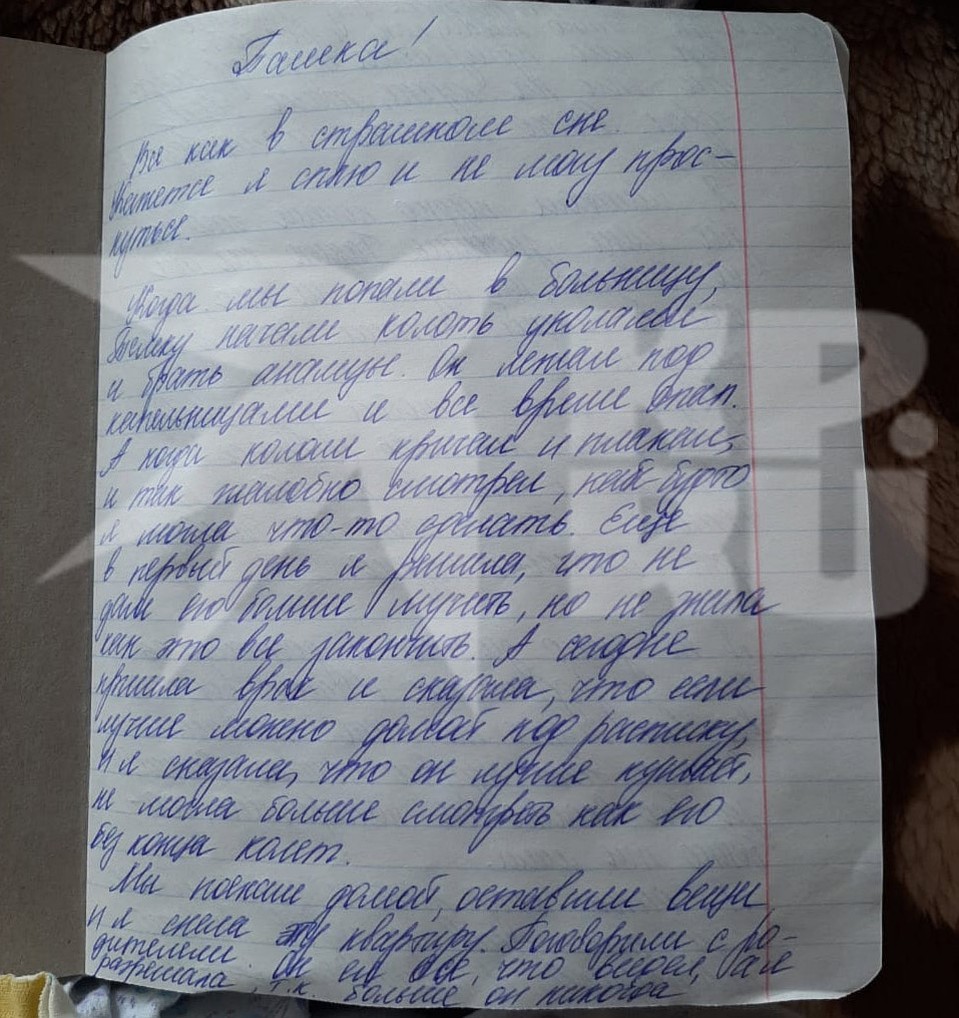 Пашка!
Все как в страшном сне.
Кажется я сплю и не могу прос-
нуться.
Когда мы попали в больницу,
начали колоть уколами
и брать анализы. Он лежал под
капельницами и все время спал.
А когда кололи кричал и плакал,
и так жалобно смотрел, как-будто
я могла что-то сделать. Еще
в первый день я решила, что не
дам его больше мучить, но не знала
как это все закончить. А сегодня
пришла врач и сказала, что если
лучше можно домой под расписку,
и я сказала, что он лучше кушает,
не могла больше смотреть как его
без конца колят.
Мы поехали домой, оставили вещи
и я сняла эту квартиру. Поговорили с ро-
дителями. Он ел все, что видел, а я
разрешала, т.к. больше он никогда